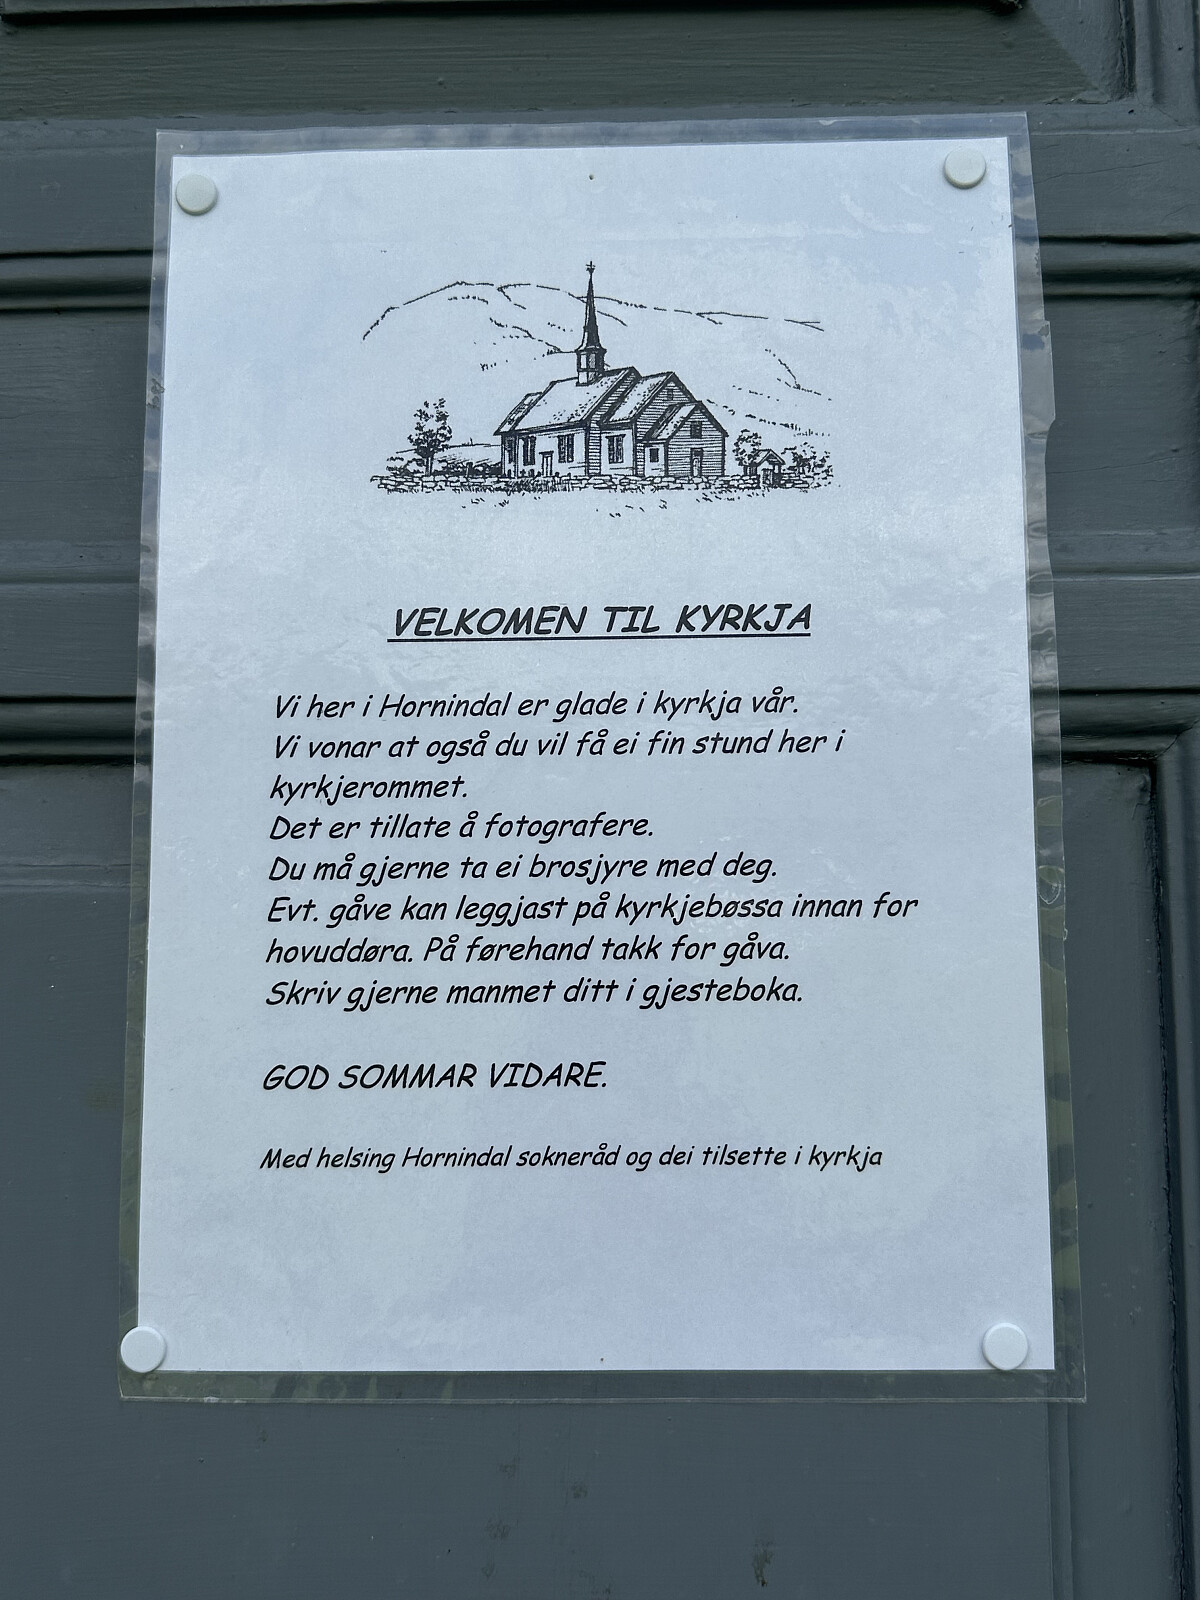 VELKOMEN TIL KYRKJA
Vi her i Hornindal er glade i kyrkja vår.
Vi vonar at også du vil få ei fin stund her i
kyrkjerommet.
Det er tillate å fotografere.
Du må gjerne ta ei brosjyre med deg.
Evt. gåve kan leggjast på kyrkjebøssa innan for
hovuddøra. På førehand takk for gåva.
Skriv gjerne manmet ditt i gjesteboka.
GOD SOMMAR VIDARE.
Med helsing Hornindal sokneråd og dei tilsette i kyrkja